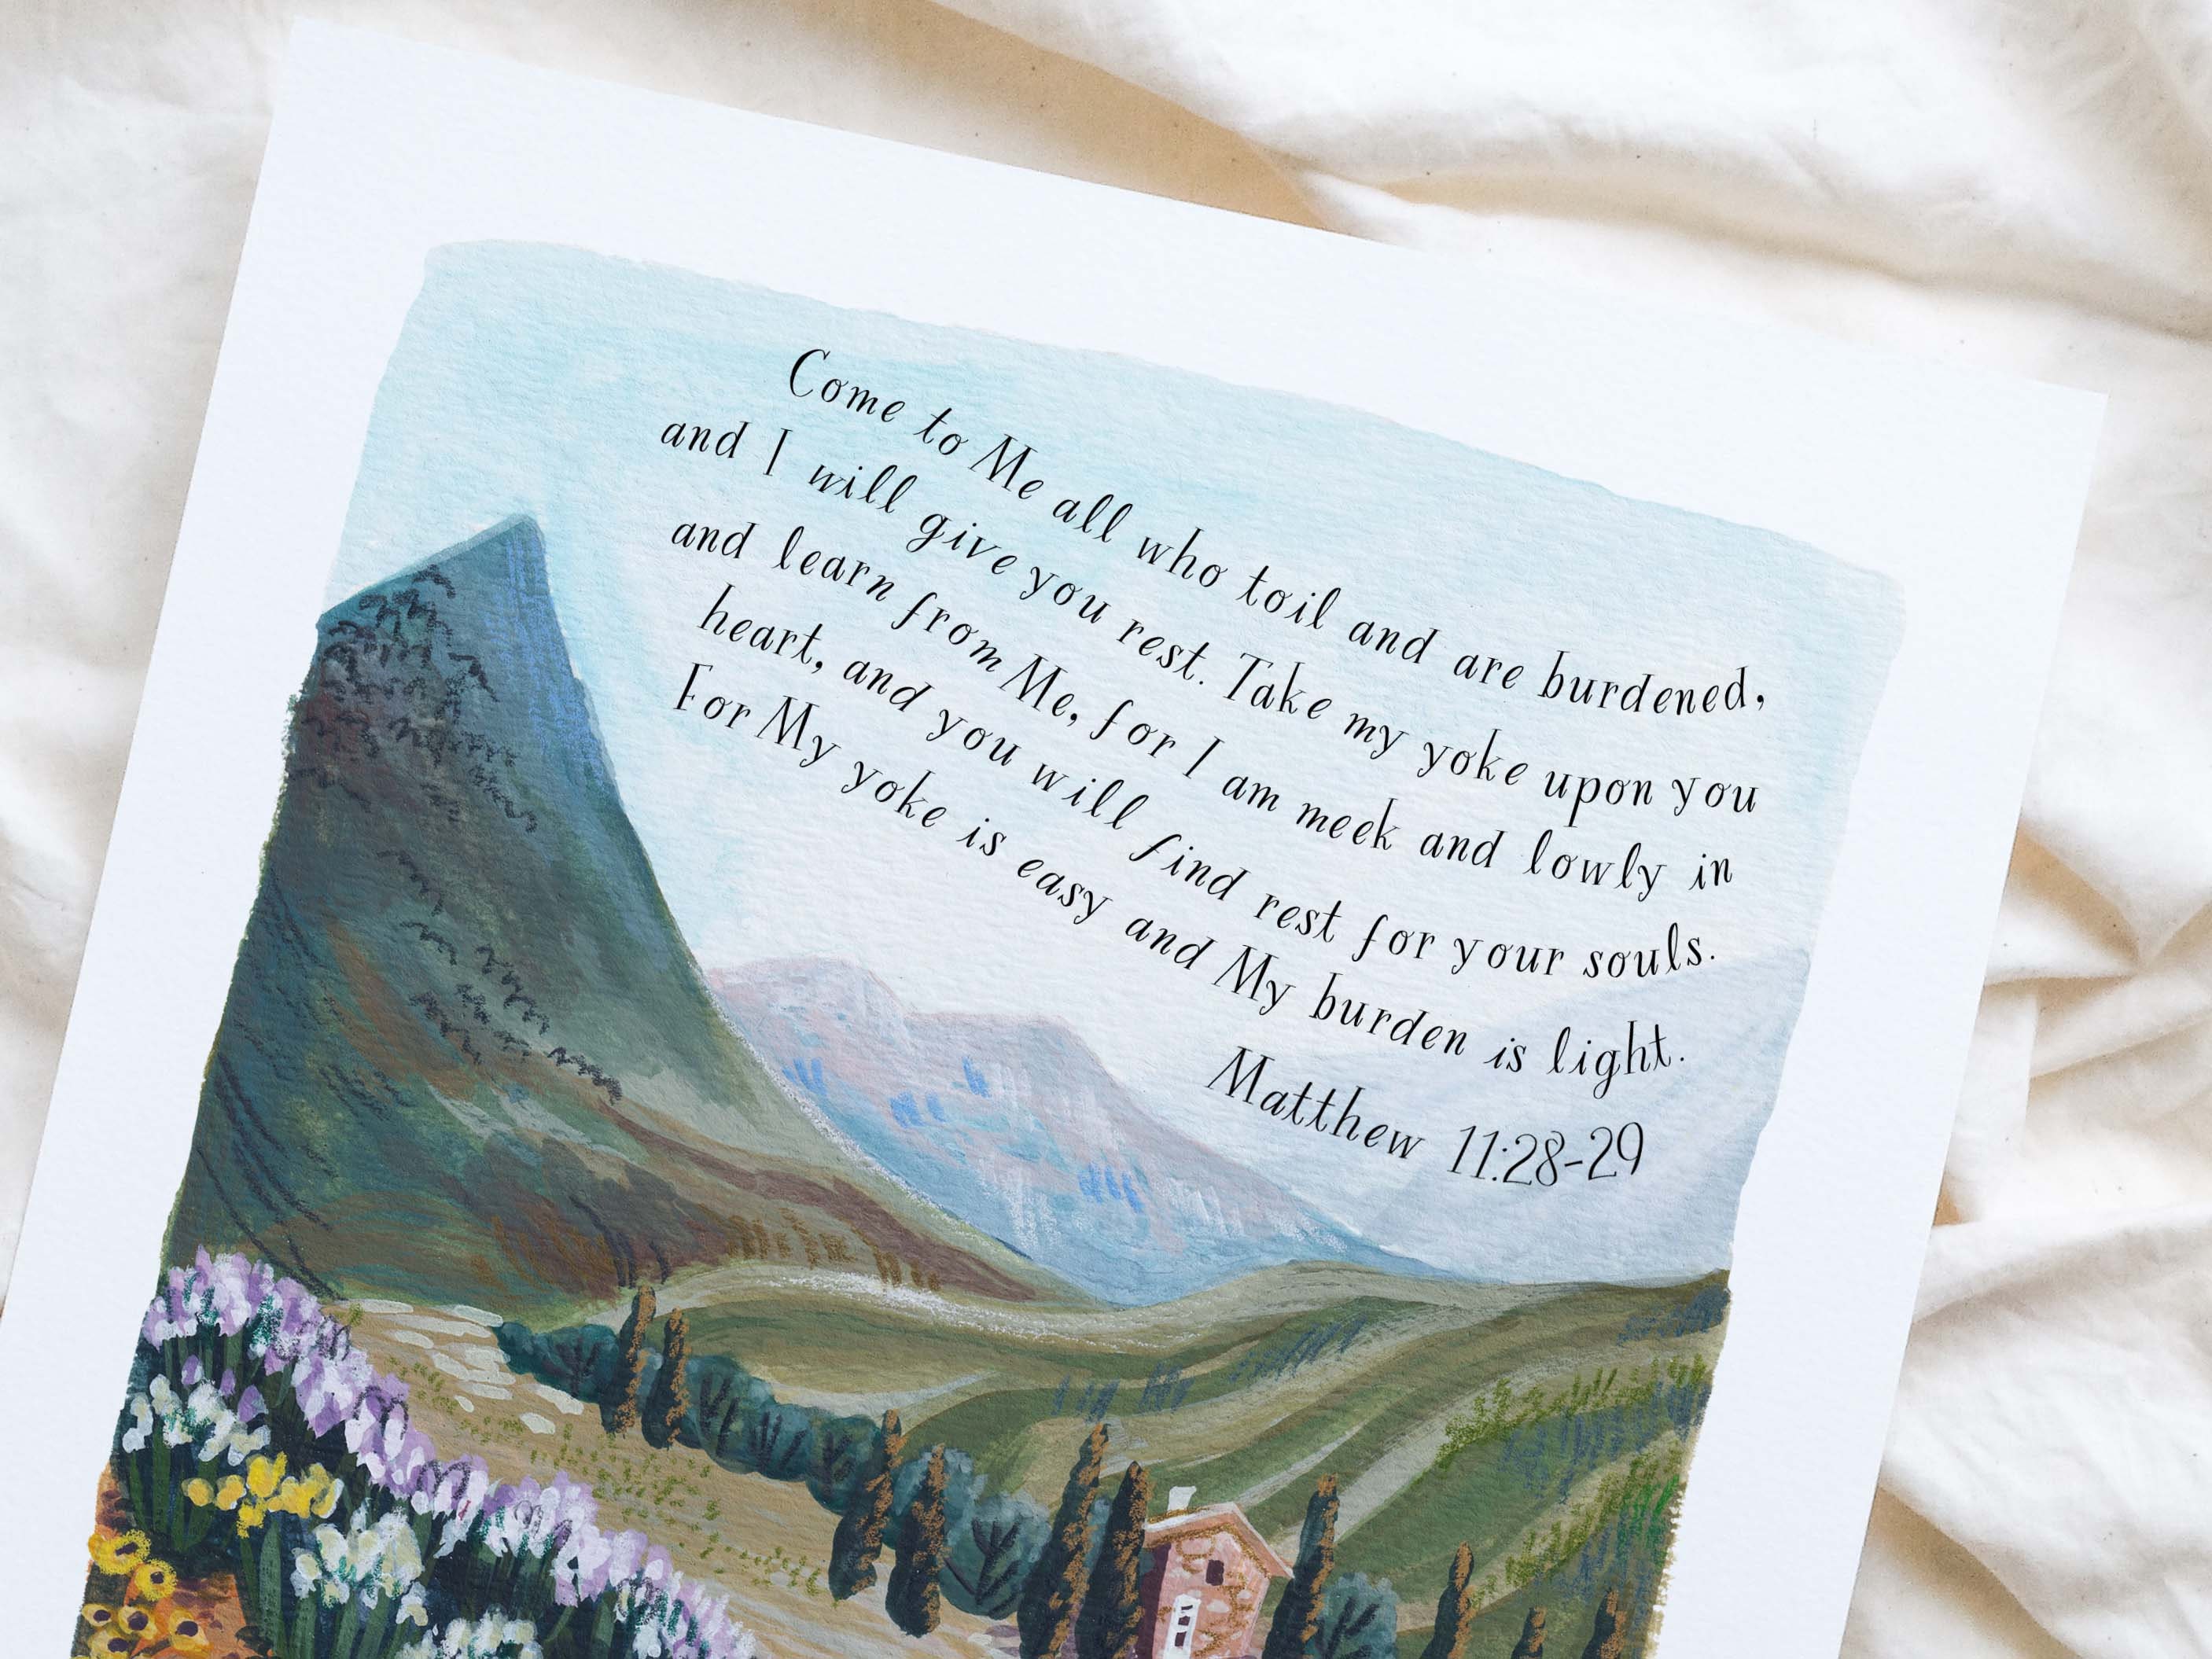 Come to Me all who toil and are burdened,
and I will give you rest. Take my yoke upon you
and learn from Me, for I am meek and lowly in
heart, and you will find rest for your souls.
For My yoke is easy and My burden is light.
Matthew 11:28-29